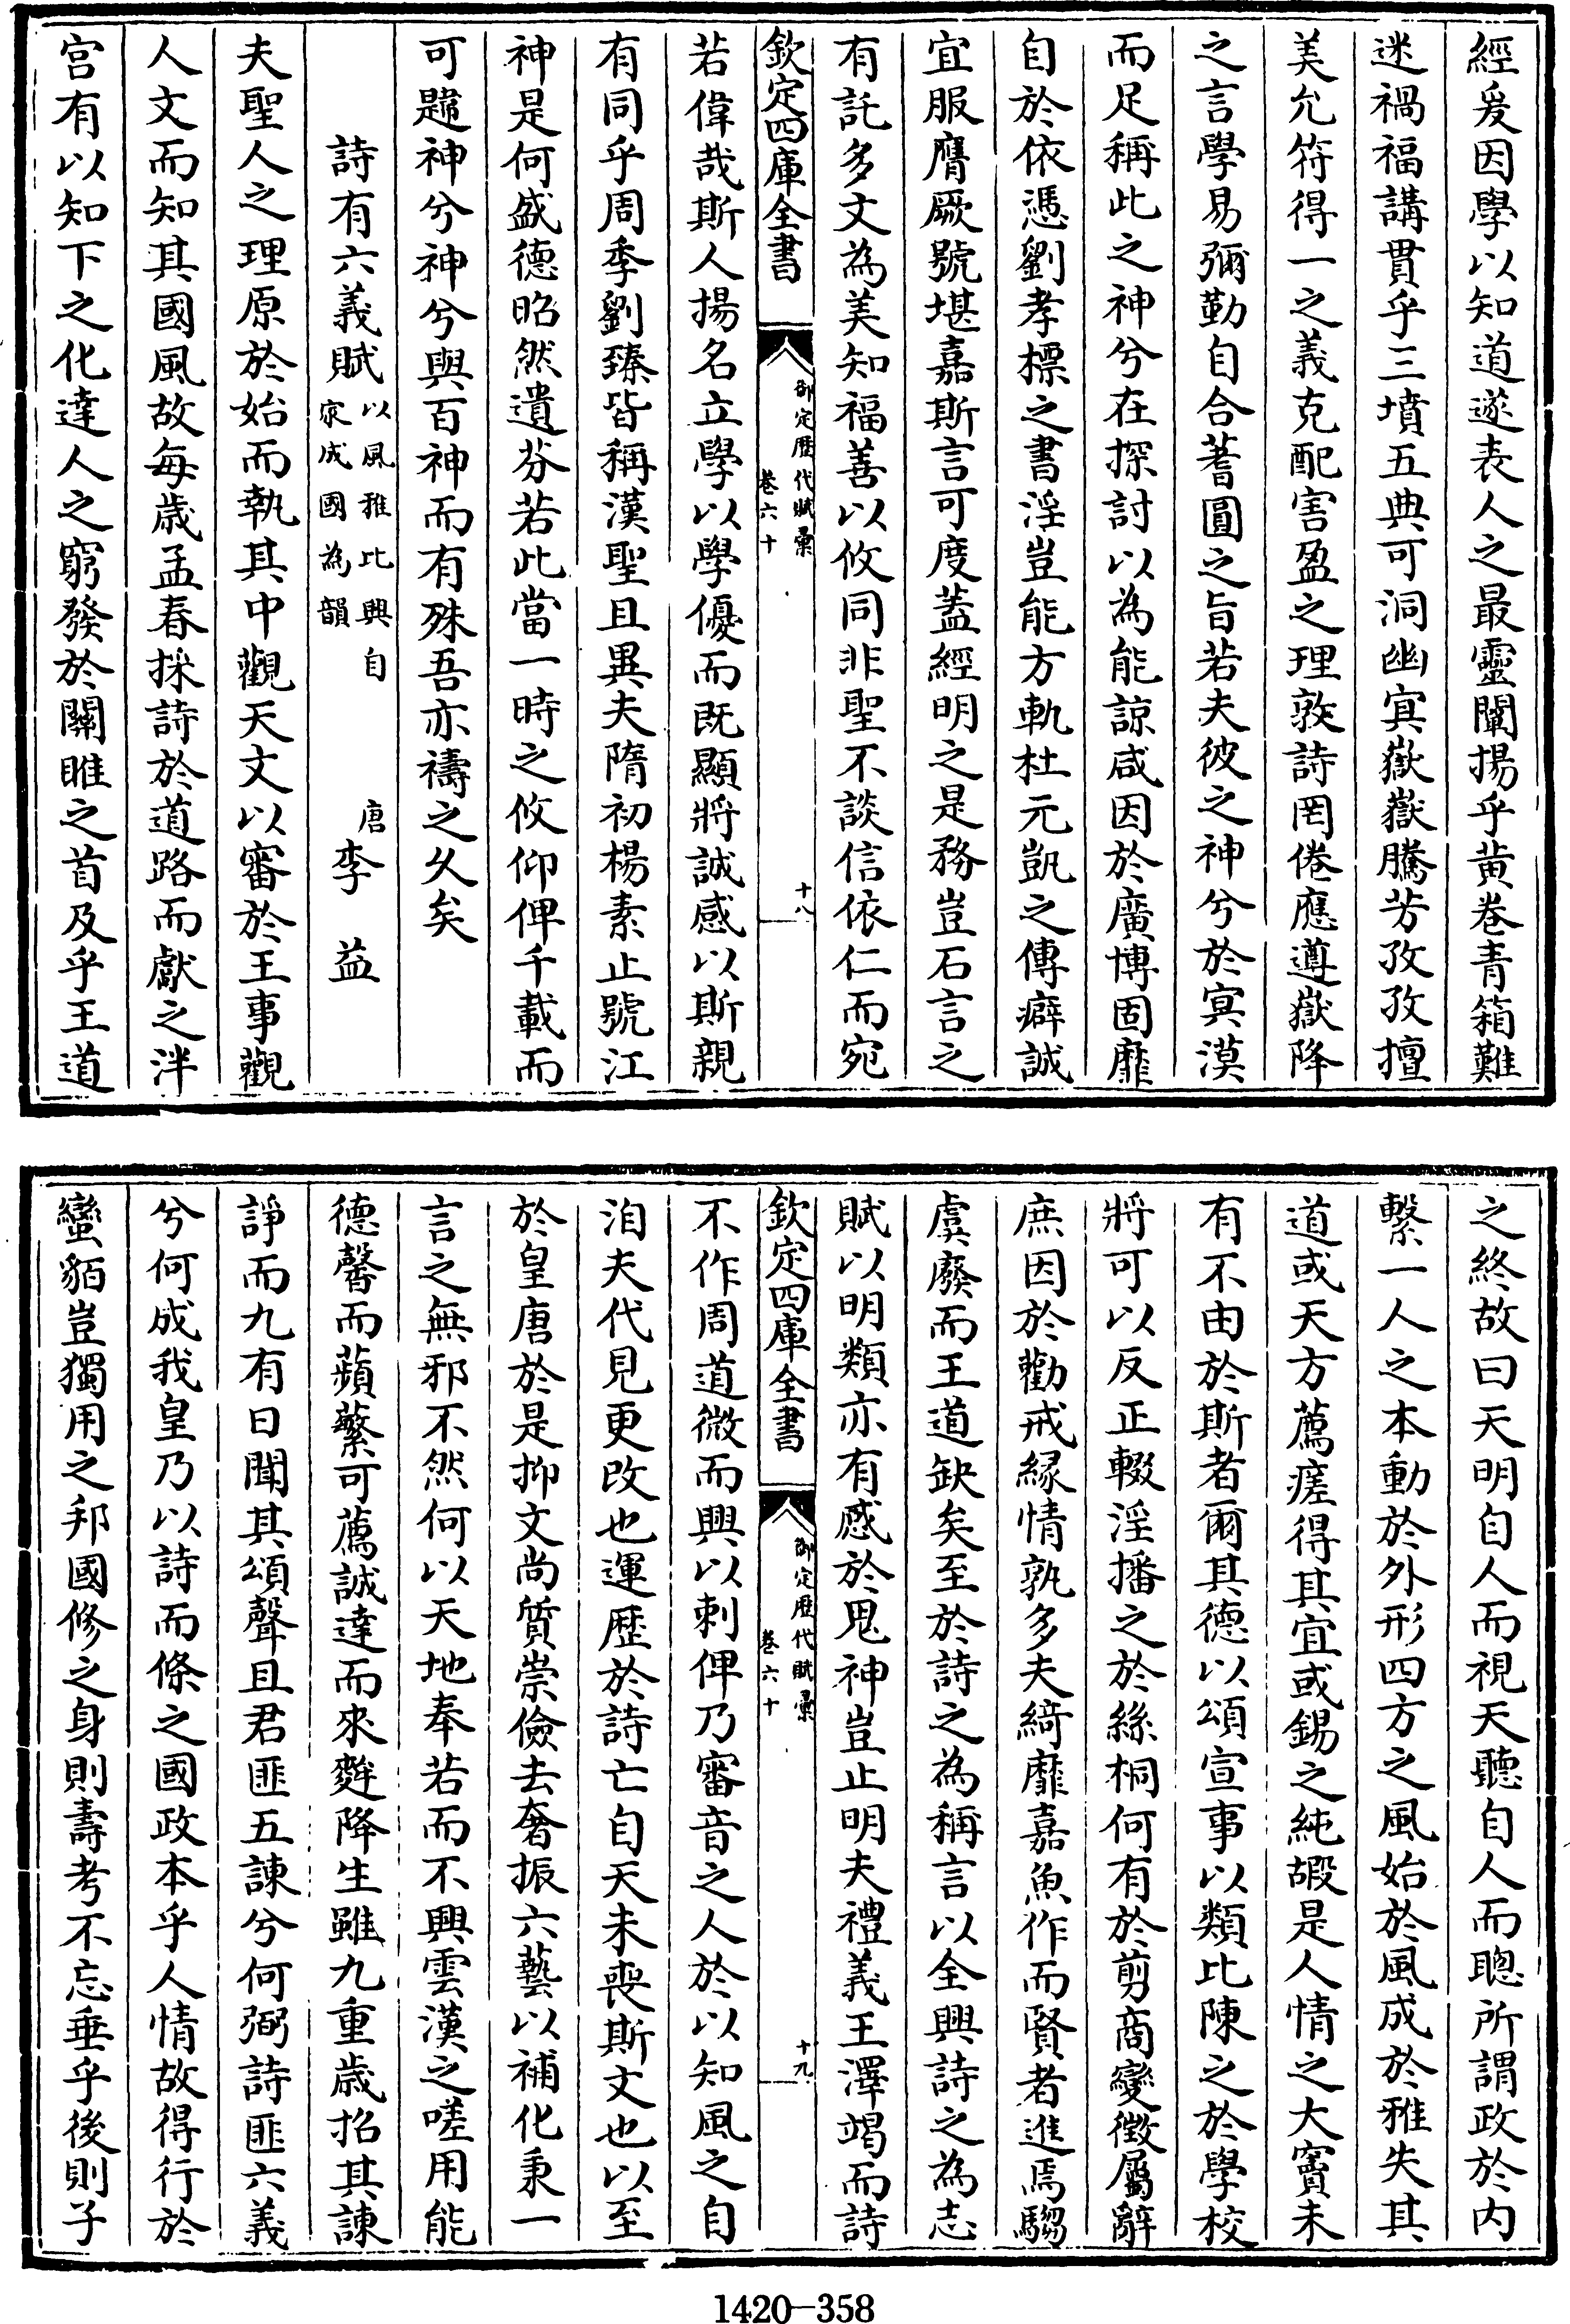 經爰因學以知道遂表人之最靈闡揚乎黄卷青箱難
迷禍福講貫乎三墳五典可洞幽㝠嶽嶽騰芳孜孜擅
美允符得一之義克配害盈之理敦詩罔倦應遵嶽降
之言學易彌勤自合蓍圓之旨若夫彼之神兮於㝠漠
而足稱此之神兮在探討以為能諒咸因於廣博固靡
自於依憑劉孝標之書淫豈能方軌杜元凱之傳癖誠
宜服膺厥號堪嘉斯言可度蓋經明之是務豈石言之
有託多文為美知福善以攸同非聖不談信依仁而宛
欽定四庫全書
御定歴代賦彙
卷六十
十八
若偉哉斯人揚名立學以學優而既顯將誠感以斯親
有同乎周季劉臻皆稱漢聖且異夫隋初楊素止號江
神是何盛德昭然遺芬若此當一時之攸仰俾千載而
可躔神兮神兮與百神而有殊吾亦禱之久矣
詩有六義賦以風雅比興自家成國為韻
唐李益
夫聖人之理原於始而執其中觀天文以審於王事觀
人文而知其國風故每歳孟春採詩於道路而獻之泮
宫有以知下之化達人之窮發於關雎之首及乎王道
之終故曰天明自人而視天聽自人而聰所謂政於内
繫一人之本動於外形四方之風始於風成於雅失其
道或天方薦瘥得其宜或錫之純嘏是人情之大竇未
有不由於斯者爾其德以頌宣事以類比陳之於學校
將可以反正輟淫播之於絲桐何有於剪商變徵屬辭
庶因於勸戒緣情孰多夫綺靡嘉魚作而賢者進焉騶
虞廢而王道缺矣至於詩之為稱言以全興詩之為志
賦以明類亦有感於鬼神豈止明夫禮義王澤竭而詩
欽定四庫全書
御定歴代賦彙
卷六十
十九
不作周道微而興以刺俾乃審音之人於以知風之自
洎夫代見更改也運歴於詩亡自天未喪斯文也以至
於皇唐於是抑文尚質崇儉去奢振六藝以補化秉一
言之無邪不然何以天地奉若而不興雲漢之嗟用能
德馨而蘋蘩可薦誠達而來麰降生雖九重歳招其諫
諍而九有日聞其頌聲且君匪五諫兮何弼詩匪六義
兮何成我皇乃以詩而條之國政本乎人情故得行於
蠻貊豈獨用之邦國修之身則壽考不忘垂乎後則子
1420—358